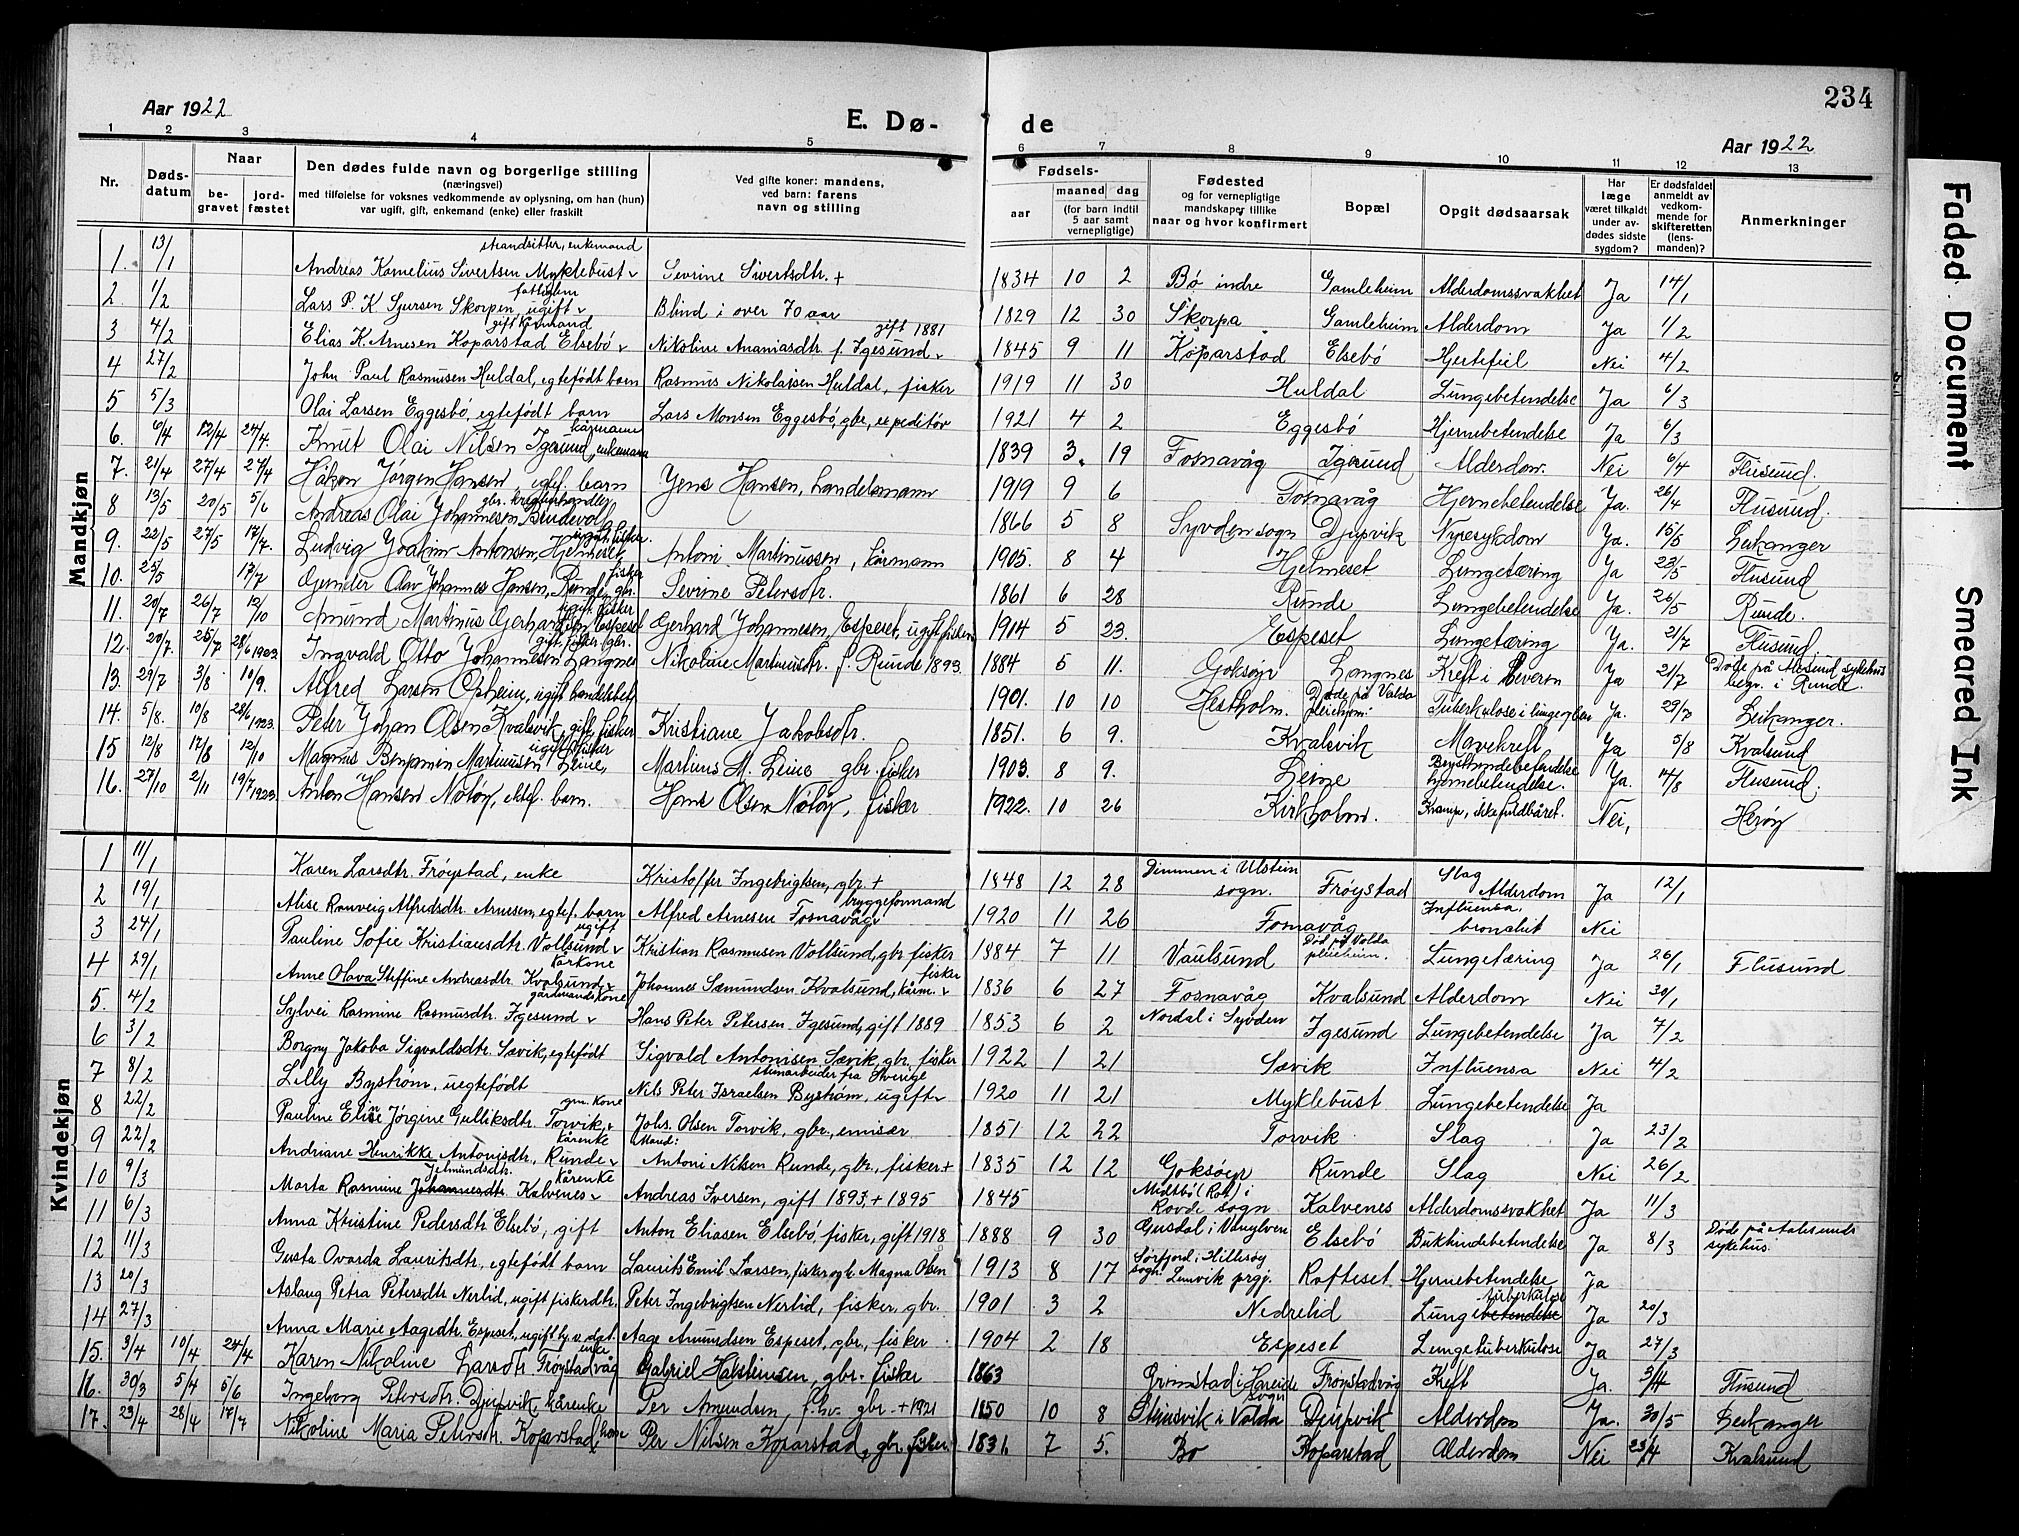 234
Aar 1922
E. Dø-
de
Aar 1922
1 2 3 4 5 6 7 8 9 10 11 12 13
Nr.
Døds-datum
Naar
be-gravet
jord-fæstet
Den dødes fulde navn og borgerlige stilling
(næringsvei)
med tilføielse for voksnes vedkommende av oplysning, om han (hun)
var ugift, gift, enkemand (enke) eller fraskilt
Ved gifte koner: mandens,
ved barn: farens
navn og stilling
Fødsels-
aar
maaned
dag
(for barn indtil
5 aar samt
vernepligtige)
Fødested
og for vernepligtige
mandskaper tillike
naar og hvor konfirmert
Bopæl
Opgit dødsaarsak
Har
læge
været tilkaldt
under av-
dødes sidste
sygdom?
Er dødsfaldet
anmeldt av
vedkom-
mende for
skifteretten
(lens-
manden)?
Anmerkninger
Mandkjøn
1. 13/1 Andreas Kornelius Sivertsen Myklebust strandsitter, enkemand Sevrine Sivertsdtr. + 1834 10 2 Bø indre Gamleheim Alderdomssvakhet Ja 14/1
2 1/2 Lars P. K Sjursen Skorpen, ugift fattiglem Blind i over 70 aar 1829 12 30 Skorpa Gamleheim Alderdom Ja 1/2
3 4/2 Elias K. Arnesen Koparstad Elsebø gift Nikoline Ananiasdtr. f. Igesund gift 1881 1845 9 11 Koparstad Elsebø Hjertefeil Nei 4/2
4 27/2 John Paul Rasmusen Huldal, egtefødt barn Rasmus Nikolaisen Huldal, fisker 1919 11 30 Huldal Lungebetendelse Ja 6/3
5 5/3 Olai Larsen Eggesbø, egtefødt barn Lars Monsen Eggesbø, gbr, expeditør 1921 4 2 Eggesbø Hjernebetendelse Ja 6/3
6. 6/4 12/4 24/4. Knut Olai Nilsen Igesund, kårmann enkemann 1839 3. 19 Fosnavåg Igesund Alderdom. Nei 6/4 Flusund.
7. 21/4 27/4 27/4 Håkon Jørgen Hansen, egtef. barn Jens Hansen, handelsmann 1919 9 6 Fosnavåg Hjernebetendelse Ja. 26/4 Flusund.
8 13/5 20/5 5/6 Andreas Olai Johannesen Bendevoll gbr. kreaturhandler 1866 5 8 Syvden sogn Djupvik Nyresykdom Ja. 15/5 Leikanger
9. 22/5 27/5 17/7. Ludvig Joakim Antonsen, Helmeset, ugift, fisker. Antoni Martinussen, kårmann 1905. 8 4 Helmeset Lungetæring Ja 23/5 Flusund
10. 25/5 13/7 Gunder Olav Johannes Hansen, Runde, gbr. fisker Sevrine Petersdtr. 1861 6 28 Runde Lungebetendelse Ja. 26/5 Runde.
11. 20/7 26/7 12/10 Amund Martinus Gerhardsen Espeset ugift fisker Gerhard Johannesen, Espeset, ugift fisker 1914 5 23. Espeset Lungetæring Ja. 21/7 Flusund.
12. 20/7. 25/7 28/6 1923. Ingvald Otto Johannesen Langnes gift, fisker, gbr. Nikoline Martinusdtr. f. Runde 1893. 1884 5 11. Goksøyr Langnes Kreft i Leveren Ja 21/7 Døde på Ålesund sykehus begr. i Runde.
13. 29/7 3/8 10/9. Alfred Larsen Opheim, ugift handelsbetj. 1901. 10 10 Hestholm. Døde på Volda pleiehjem. Tuberkulose i lunge Ja. 29/7 Leikanger.
14. 5/8. 10/8 28/6 1923. Peter Johan Olsen Kvalsvik, gift, fisker Kristiane Jakobsdtr. 1851. 6 9. Kvalsvik Mavekreft Ja 5/8 Kvalsund
15 12/8 17/8 12/10 Magnus Benjamin Martinusen Leine, ugift fisker Martinus M. Leine gbr. fisker 1903. 8 9. Leine Brysthindebetendelse hjernebetendelse. Ja. 14/8 Flusund.
16. 27/10 2/11 19/7 1923. Anton Hansen Notøy, ektef. barn. Hans Olsen Notøy, fisker 1922. 10 26 Kirkholm. Krampe, ikke fuldbåret. Nei, Herøy
Kvindekjøn
1 11/1 Karen Larsdtr. Frøystad, enke Kristoffer Ingebrigtsen, gbr. + 1848 12 28 Dimmen i Ulstein sogn. Frøystad Slag Alderdom Ja 12/1
2 19/1 Alise Ranveig Alfredsdtr. Arnesen, egtef. barn Alfred Arnesen Fosnavåg bryggeformand 1920 11 26 Fosnavåg Influensa, bronchit Nei
3 24/1 Pauline Sofie Kristiansdtr. Vollsund ugift Kristian Rasmusen Vollsund, gbr. fisker 1884 7 11 Vaulsund Død på Volda pleiehjem. Lungetæring Ja 26/1 Flusund
4 29/1 Anne Olava Steffine Andreasdtr. Kvalsund kårkone Johannes Sæmundsen Kvalsund, kårm. fisker 1836 6 27 Fosnavåg Kvalsund Alderdom Nei 30/1
5. 4/2 Sylvei Rasmine Rasmusdtr. Igesund gårdmandskone Hans Peter Petersen Igesund, gift 1889 1853 6 2 Nordal i Syvden Igesund Lungebetendelse Ja 7/2
6 3/2 Borgny Jakoba Sigvaldsdtr. Sævik, egtefødt Sigvald Antonisen Sævik, gbr. fisker 1922 1 21 Sævik Influensa Nei 4/2
7 8/2 Lilly Byström, uegtefødt Nils Peter Israelsen Byström, ugift stenarbeider fra Sverige 1920 11 21 Myklebust Lungebetendelse Ja
8 22/2 Pauline Eline Jørgine Gulliksdtr. Torvik, gm. kone Johs. Olsen Torvik, gbr., emisær 1851 12 22 Torvik Slag Ja 23/2
9 22/2 Andriane Henrikke Antonisdtr. Runde kårenke Mand: Antoni Nilsen Runde, gbr, fisker + 1835 12 12 Goksøyr Runde Slag Nei 26/2
10 9/3 Marta Rasmine Johannesdtr. Jetmundsdtr. Kalvenes kårenke Andreas Iversen, gift 1893, + 1895 1845 Midtbø (Rot) i Rovde sogn Kalvenes Alderdomssvakhet Ja 11/3
11 6/3 Anna Kristine Pedersdtr Elsebø, gift Anton Eliasen Elsebø, fisker, gift 1918 1888 9 30 Gusdal i Vanylven Elsebø Bukhindebetendelse Ja 8/3 Døde på Aalesunds sykehus.
12 11/3 Gusta Ovarda Lauritsdtr, egtefødt barn Laurits Emil Larsen, fisker og Magna Olsen 1913 8 17 Sørfjord i Hillesøy sogn Lenvik prgj. Røfteset Hjernebetendelse Ja
13 20/3 Aslaug Petra Petersdtr Nerlid, ugift fiskerdtr. Peter Ingebrigtsen Nerlid, fisker, gbr. 1901 3 2 Nedrelid Lungebetendelse tuberkulose Ja 20/3
14 27/3 Anna Marie Aagedtr. Espeset, ugift Aage Amundsen Espeset, gbr, fisker 1904 2 18 Espeset Lungetuberkulose Ja 27/3
15. 3/4 10/4 24/4 Karen Nikoline Larsdtr Frøystadvåg enke Gabriel Halsteinsen, gbr. fisker 1863 Grimstad i Hareide sogn Frøystadvåg Kreft Ja. 3/4 Flusund
16. 30/3 5/4 5/6 Ingeborg Petersdtr. Djupvik, kårenke Per Amundsen, f.hv. gbr. + 1921 1850 10 8 Steinsvik i Volda Djupvik Alderdom Ja. 30/5 Leikanger
17. 23/4 28/4 17/7 Nikoline Maria Petersdtr. Koparstad Per Nilsen Koparstad, gbr. fisker. 1831. 7 5. Bø Koparstad Alderdom Nei 23/4 Kvalsund
Faded Document
Smeared Ink